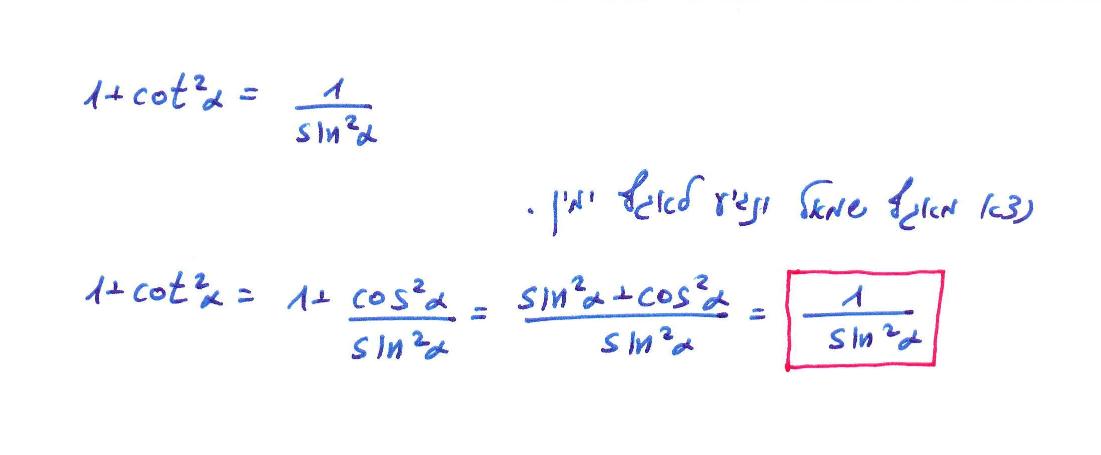 1+cot²α = 1/sin²α
נצא מאגף שמאל ונגיע לאגף ימין .
1+cot²α = 1+ cos²α/sin²α = sin²α+cos²α/sin²α = 1/sin²α